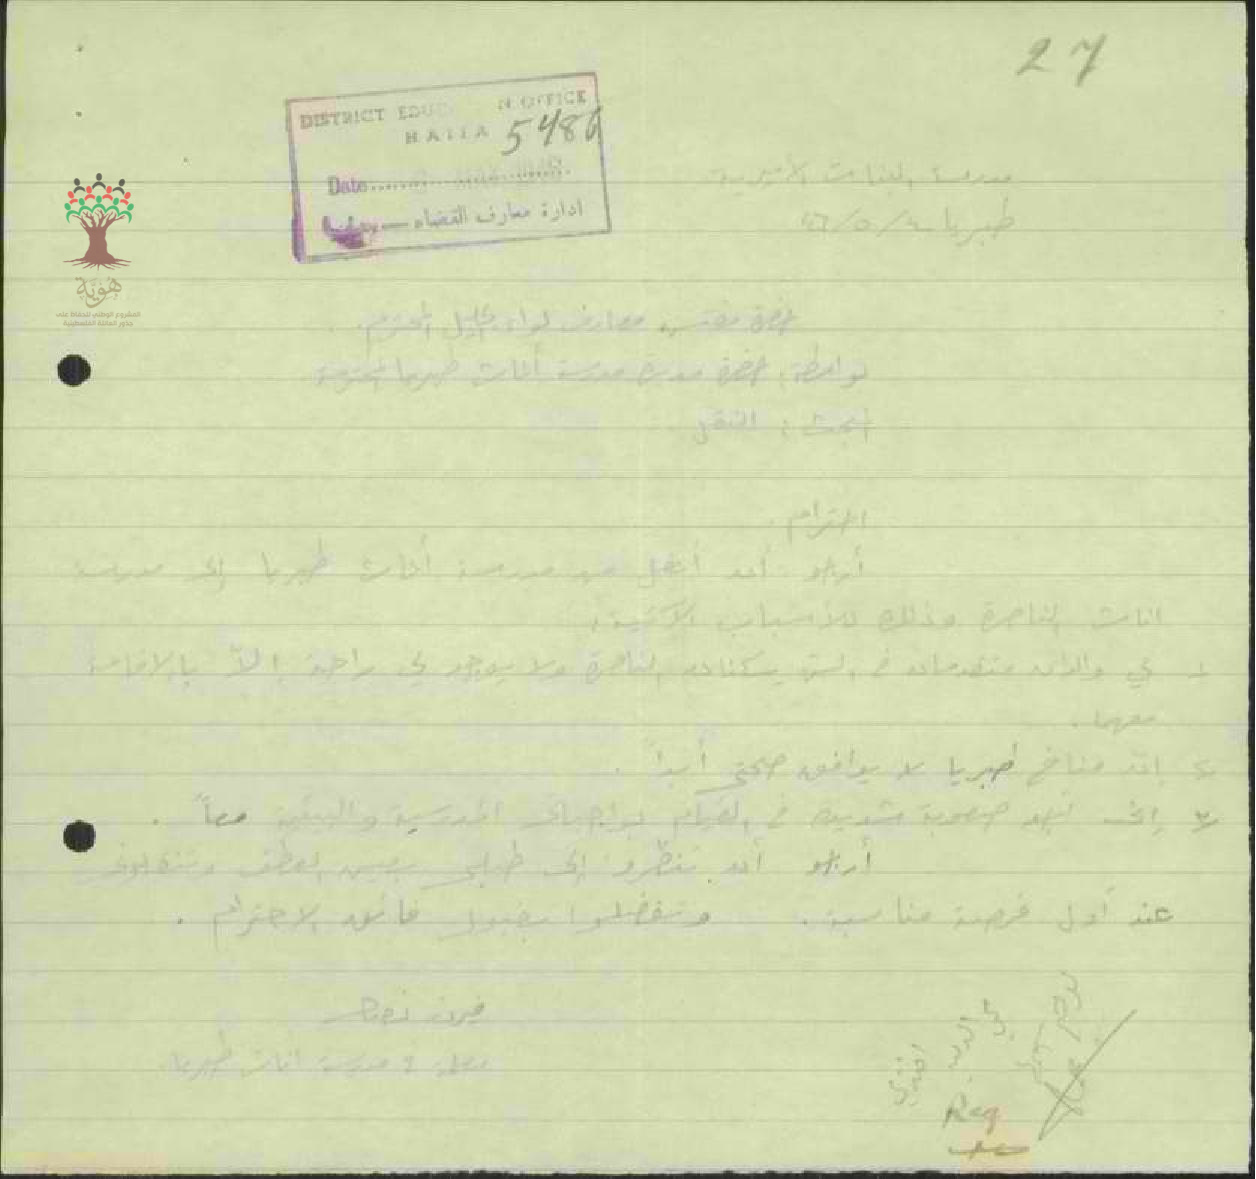 27
DISTRICT EDUCATION OFFICE
HAIFA 5486
Date
ادارة معارف القضاء —
مدرسة البنات الأميرية
طبريا ٤٦/٥/
حضرة مفتش معارف لواء الجليل المحترم.
بواسطة: حضرة مديرة مدرسة أناث طبريا المحترمة
البحث: النقل.
احترام.
أرجو أن أنقل من مدرسة أناث طبريا إلى مدرسة
اناث الناصرة وذلك للأسباب الآتية:
١ لي والدان متقدمان في السن يسكنان الناصرة ولا يوجد لي راحة إلاّ بالاقامة
معهما.
٢ إن مناخ طبريا لا يوافق صحتي أبداً.
٣ إني أجد صعوبة شديدة في القيام بواجباتي المدرسية والبيتية معاً.
أرجو أن تنظروا إلى طلبي بعين العطف وتنقلوني
عند أول فرصة مناسبة. وتفضلوا بقبول فائق الاحترام.
معلمة في مدرسة اناث طبريا
Reg
هوية
المشروع الوطني للحفاظ على
جذور العائلة الفلسطينية